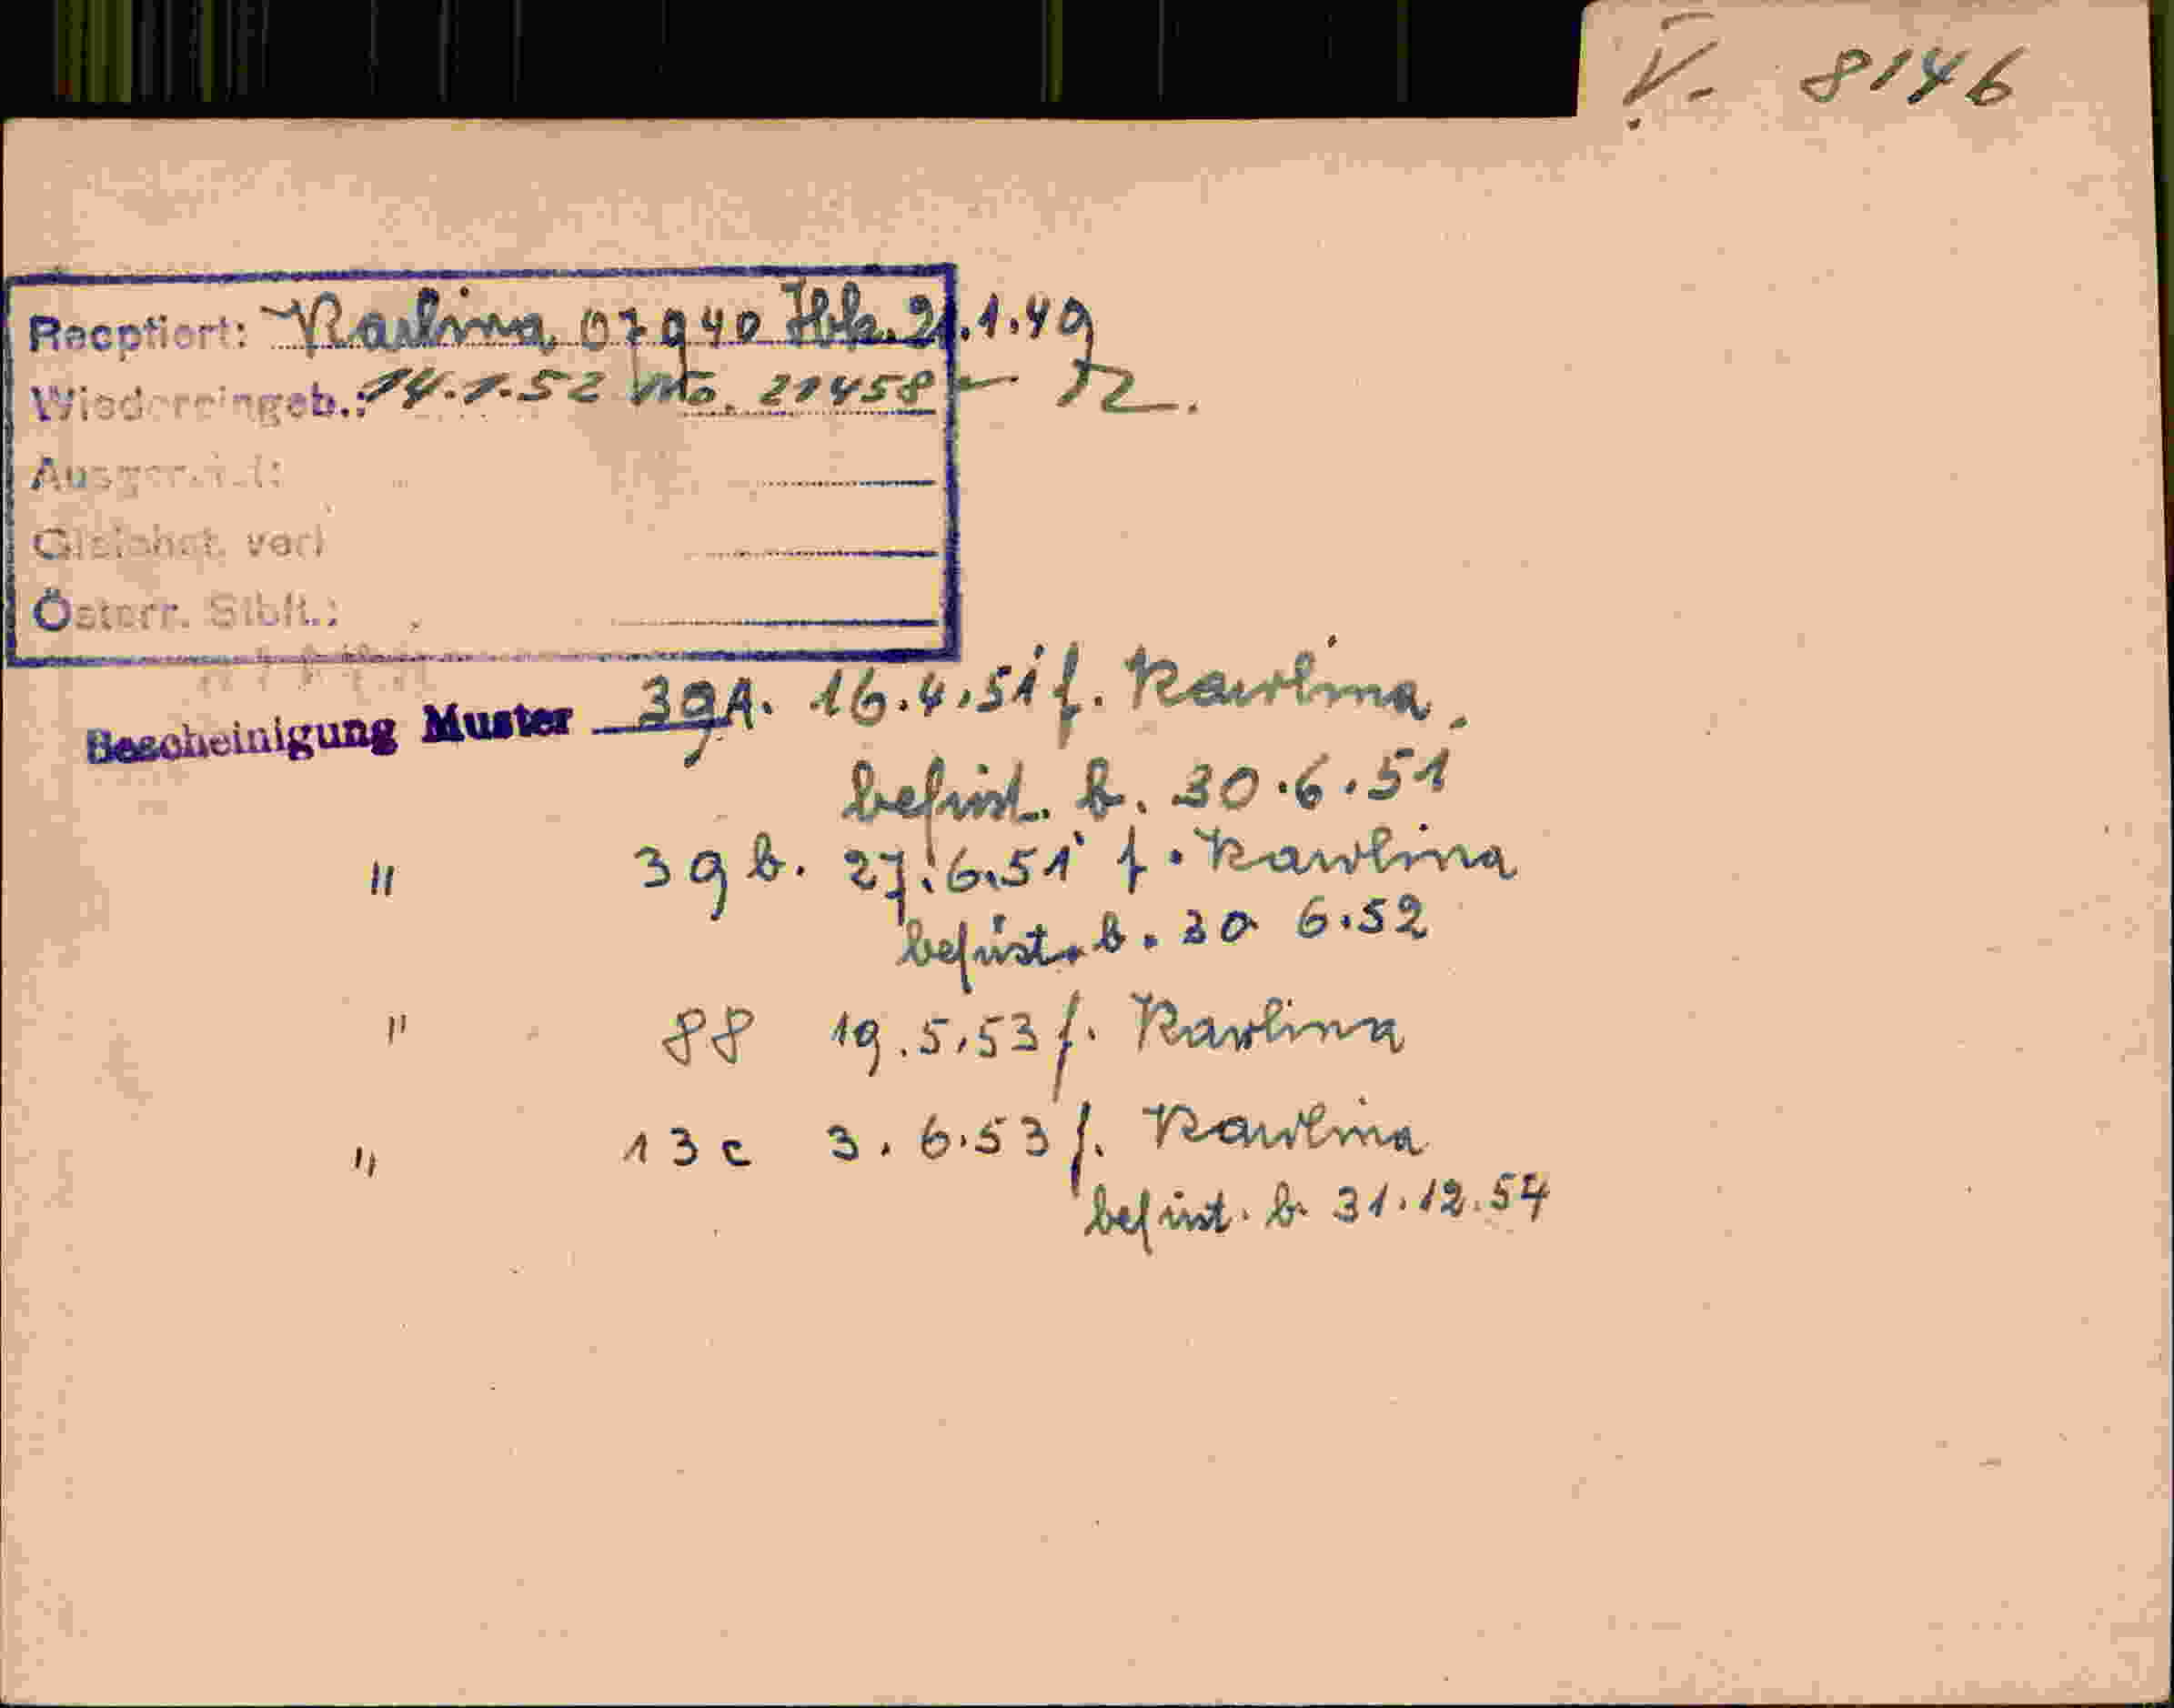 V. 8146
Reoptiert: Karlina 07940 Hk. 21.1.49
Wiedereingeb.: 14.1.52 No. 21458
Ausger.
Gleichst. verl
Österr. Stblt.:
Bescheinigung Muster 39A. 16.4.51 f. Karolina.
befrist. b. 30.6.51
" 39b. 27.6.51 f. Karolina
befrist. b. 30 6.52
" 88 19.5.53 f. Karolina
" 13c 3.6.53 f. Karolina
befrist. b. 31.12.54